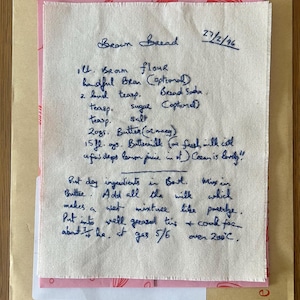 Brown Bread 27/2/96
1 lb. Brown flour
handful Bran (optional)
2 level teasp. Bread Soda.
teasp. sugar (optional)
teasp. salt
2ozs. Butter (or marg)
15 fl. ozs. Buttermilk (or fresh milk with
a few drops lemon juice in it) Cream is lovely"
Put dry ingredients in Bowl. Mix in
Butter. Add all the milk which
makes a wet mixture like porridge.
Put into well greased tin + cook for
about hr. at gas 5/6 over 200°C